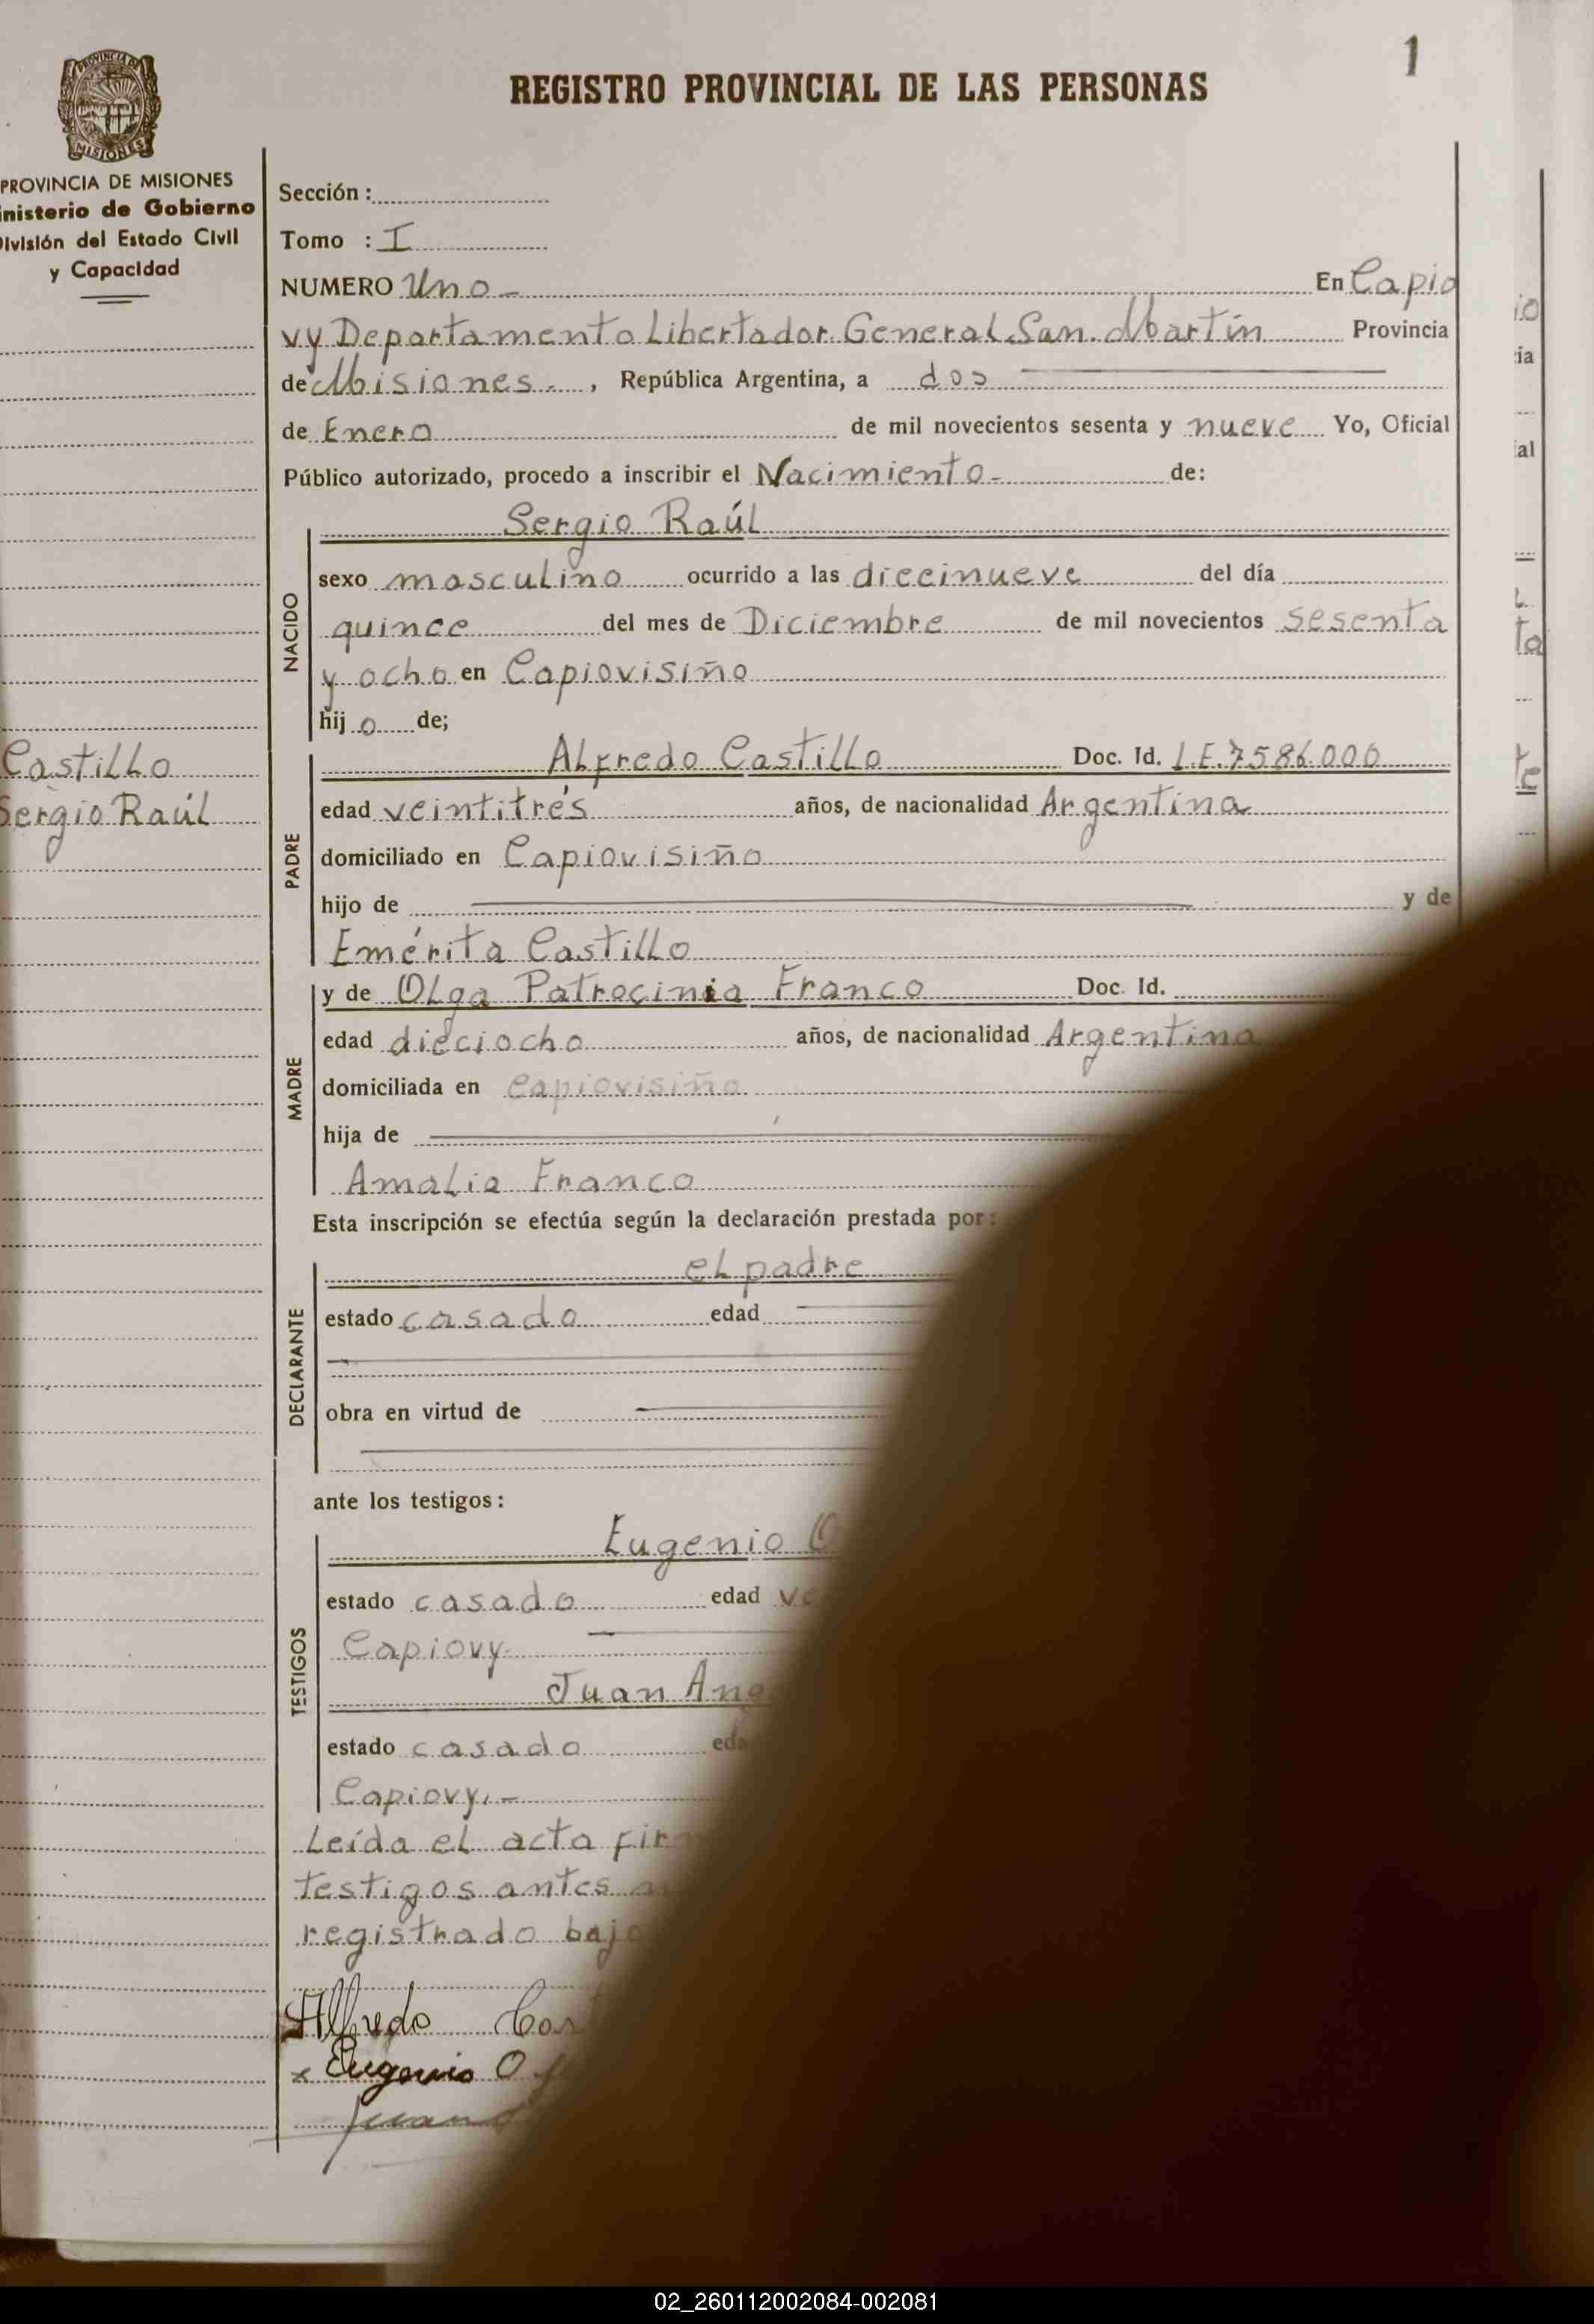 1
REGISTRO PROVINCIAL DE LAS PERSONAS
PROVINCIA DE
MISIONES
PROVINCIA DE MISIONES
inisterio de Gobierno
ivisión del Estado Civil
y Capacidad
Sección :
Tomo : I
NUMERO Uno - En Capio
vy Departamento Libertador General San Martín Provincia
de Misiones , República Argentina, a dos
de Enero de mil novecientos sesenta y nueve Yo, Oficial
Público autorizado, procedo a inscribir el Nacimiento - de:
NACIDO
Sergio Raúl
sexo masculino ocurrido a las diecinueve del día
quince del mes de Diciembre de mil novecientos sesenta
y ocho en Capiovisiño
hij o de;
Castillo
Sergio Raúl
PADRE
Alfredo Castillo Doc. Id. L.E.7586.000
edad veintitrés años, de nacionalidad Argentina
domiciliado en Capiovisiño
hijo de y de
Emérita Castillo
MADRE
y de Olga Patrocinia Franco Doc. Id.
edad dieciocho años, de nacionalidad Argentina
domiciliada en Capiovisiño
hija de
Amalia Franco
Esta inscripción se efectúa según la declaración prestada por:
DECLARANTE
el padre
estado casado edad
obra en virtud de
ante los testigos:
TESTIGOS
Eugenio O
estado casado edad ve
Capiovy
Juan Ang
estado casado eda
Capiovy.-
Leída el acta fir
testigos antes
registrado bajo
Alfredo Cas
x Eugenio O
Juan
io
ia
al
ta
te
02_260112002084-002081